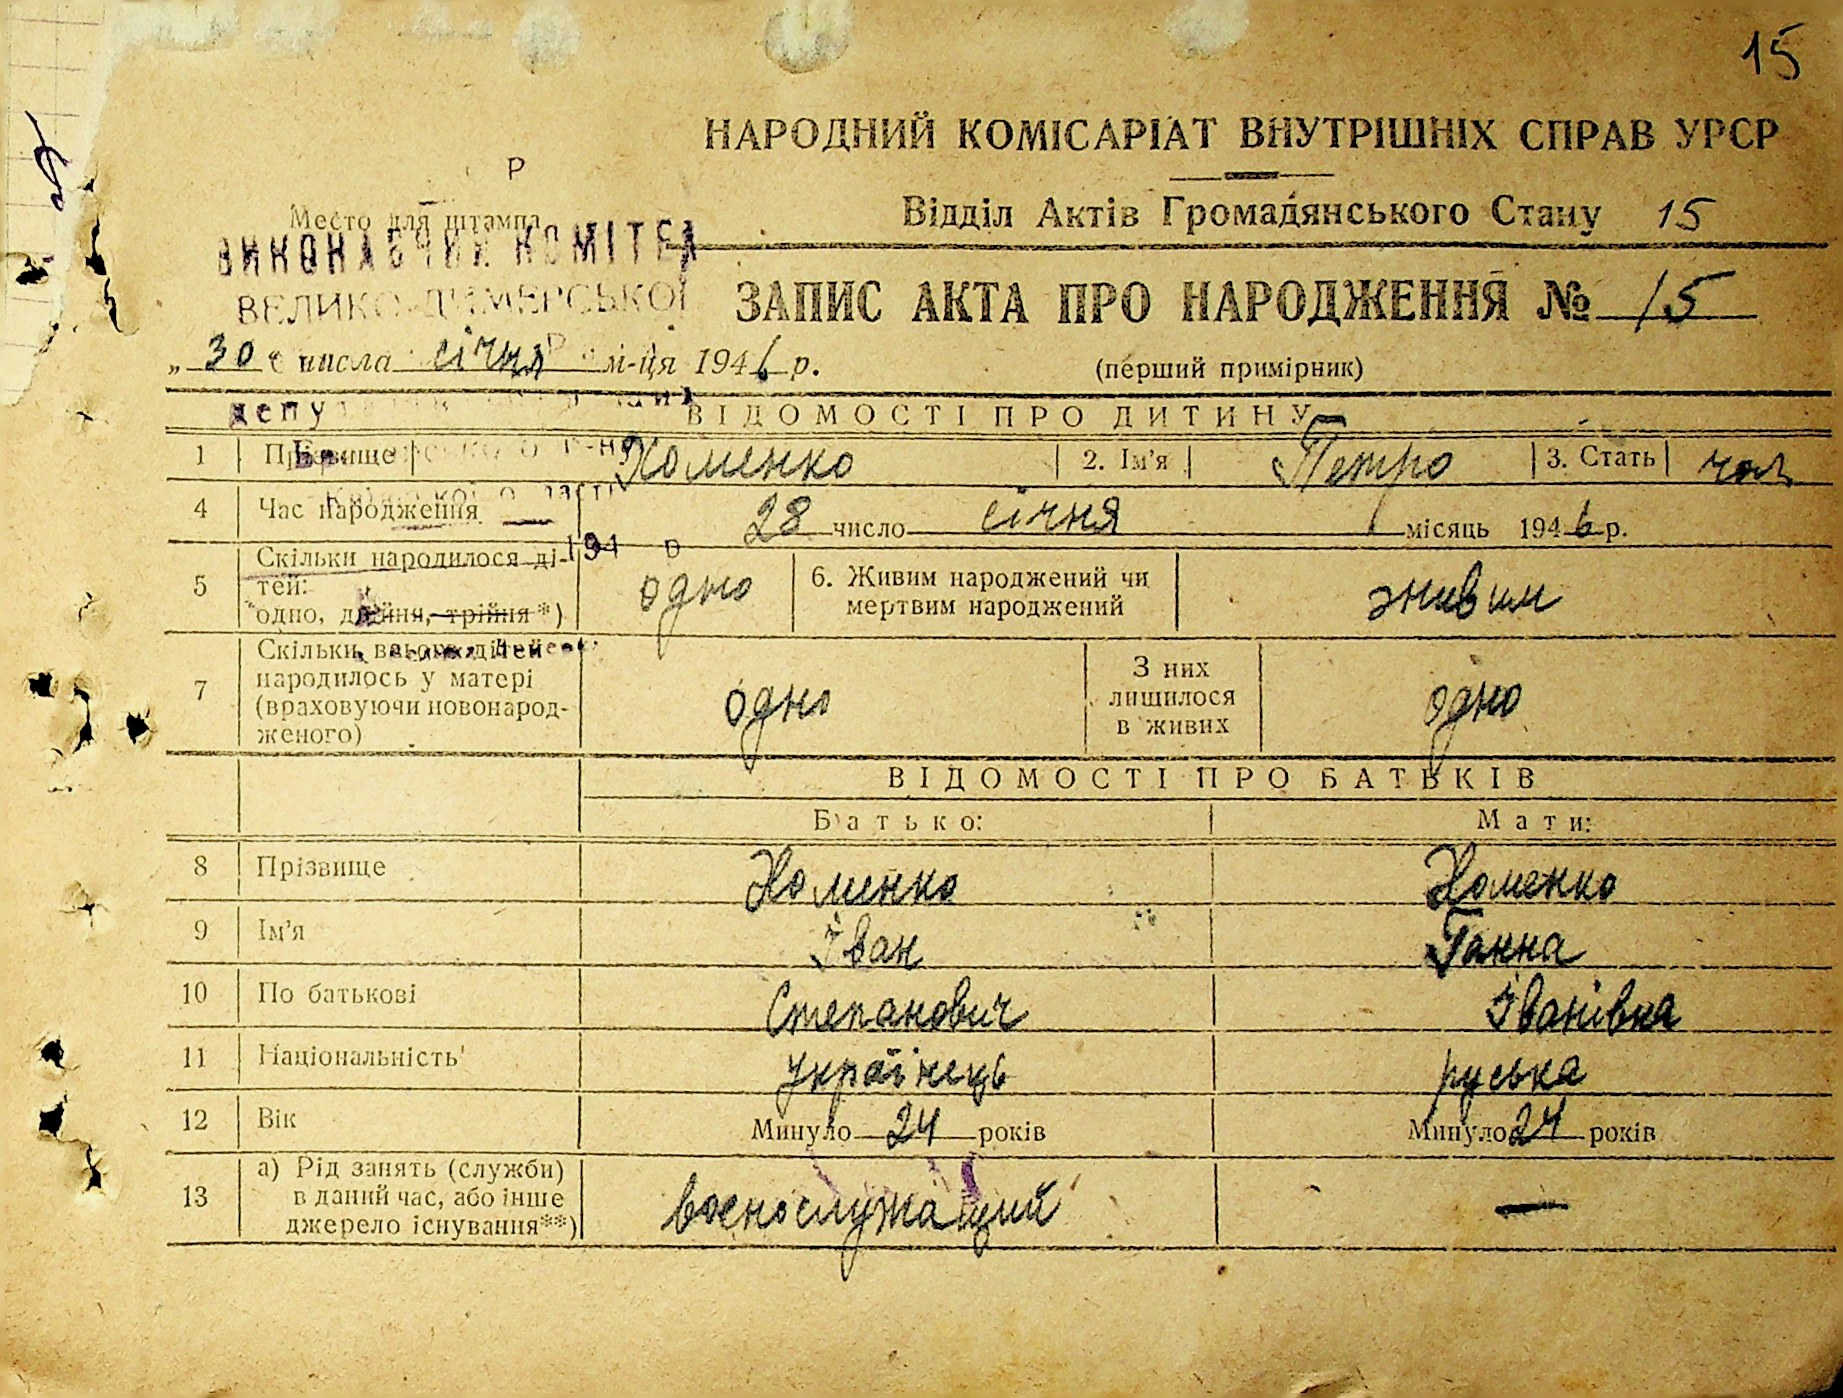 15
НАРОДНИЙ КОМІСАРІАТ ВНУТРІШНІХ СПРАВ УРСР
Р
Место для штампа
Відділ Актів Громадянського Стану 15
ВИКОНАВЧИЙ КОМІТЕТ
ВЕЛИКО-ДИМЕРСЬКОЇ
ЗАПИС АКТА ПРО НАРОДЖЕННЯ № 15
„ 30 " числа січня м-ця 1946 р.
(перший примірник)
депу
ВІДОМОСТІ ПРО ДИТИНУ
1 Прізвище Хоменко 2. Ім'я Петро 3. Стать чол
4 Час народження 28 число січня місяць 1946 р.
194 р
5 Скільки народилося ді-
тей:
одно, двійня, трійня *)
одно
6. Живим народжений чи
мертвим народжений
живим
7 Скільки всього дітей
народилось у матері
(враховуючи новонарод-
женого)
одно
З них
лишилося
в живих
одно
ВІДОМОСТІ ПРО БАТЬКІВ
Батько: Мати:
8 Прізвище Хоменко Хоменко
9 Ім'я Іван Ганна
10 По батькові Степанович Іванівна
11 Національність українець руська
12 Вік Минуло 24 років Минуло 24 років
13 а) Рід занять (служби)
в даний час, або інше
джерело існування**)
воєнослужащий —